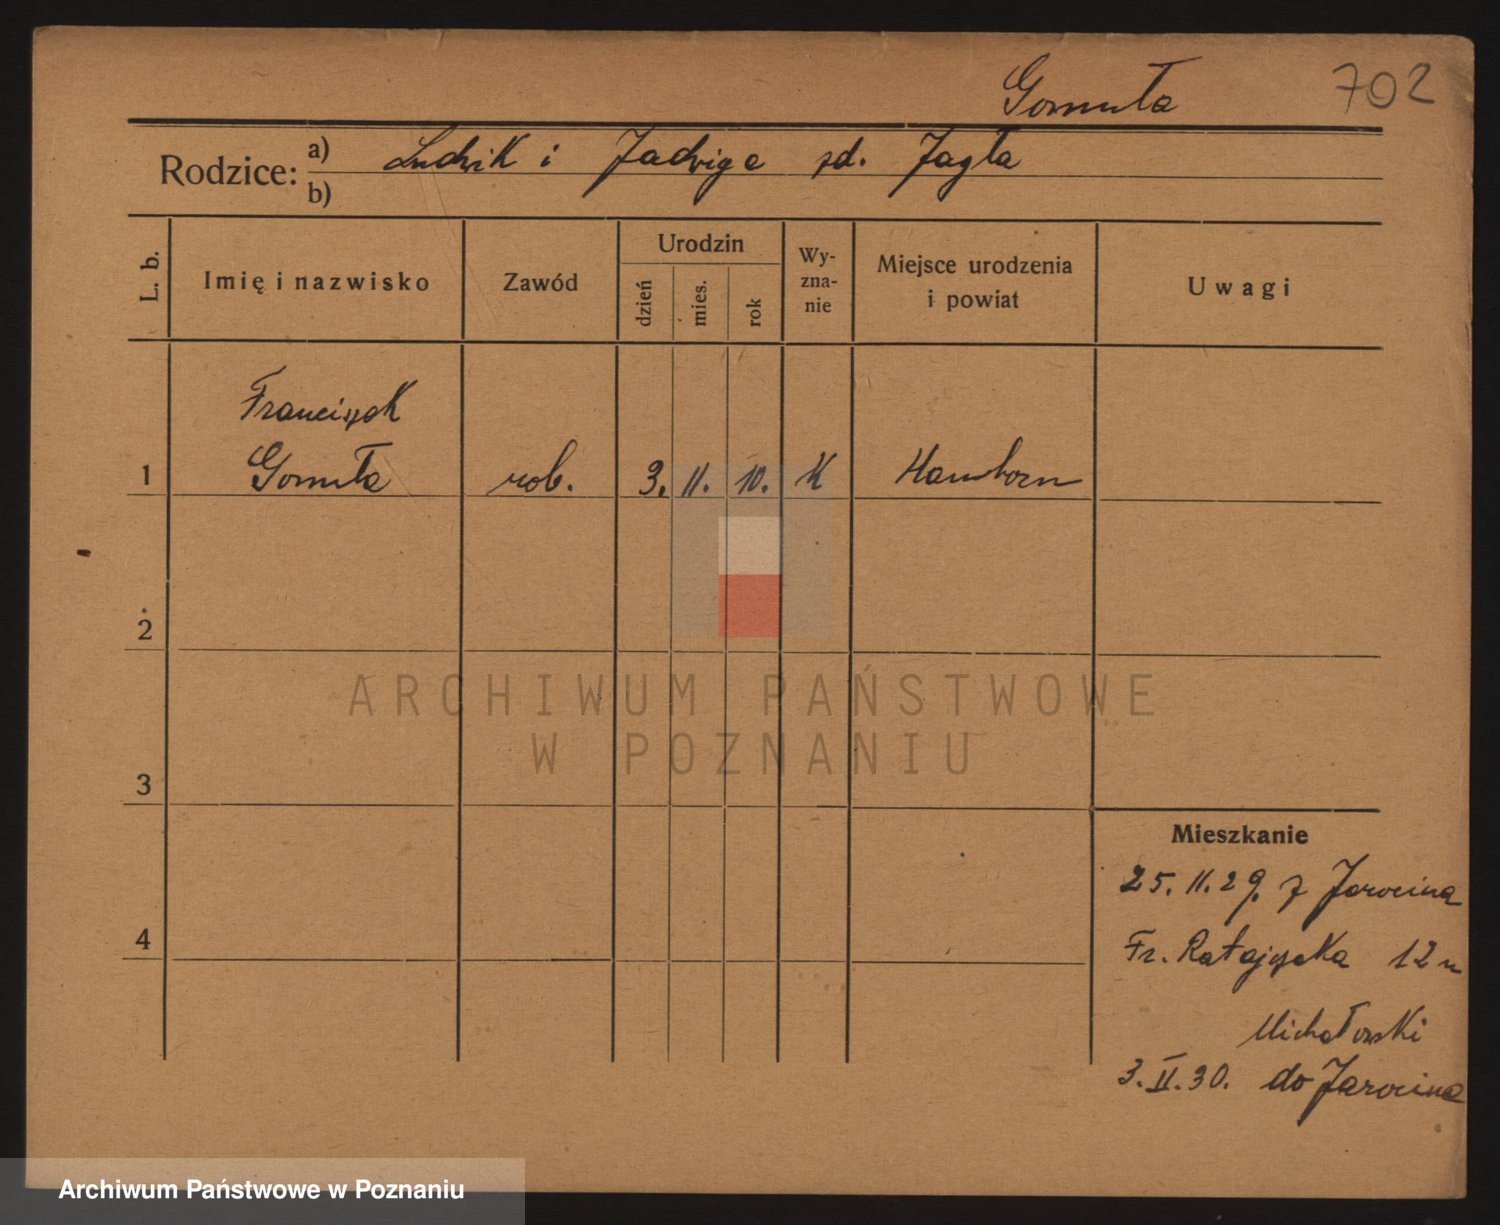 Gomuła 702
Rodzice: a) Ludwik i Jadwiga zd. Jagła
b)
L. b.
Imię i nazwisko
Zawód
Urodzin
dzień
mies.
rok
Wy-
zna-
nie
Miejsce urodzenia
i powiat
Uwagi
Franciszek
1 Gomuła rob. 3. 11. 10. K Hamborn
2
3
4
Mieszkanie
25. 11. 29. z Jarocina
Fr. Ratajczaka 12
Michałowski
3. II. 30. do Jarocina
ARCHIWUM PAŃSTWOWE
W POZNANIU
Archiwum Państwowe w Poznaniu